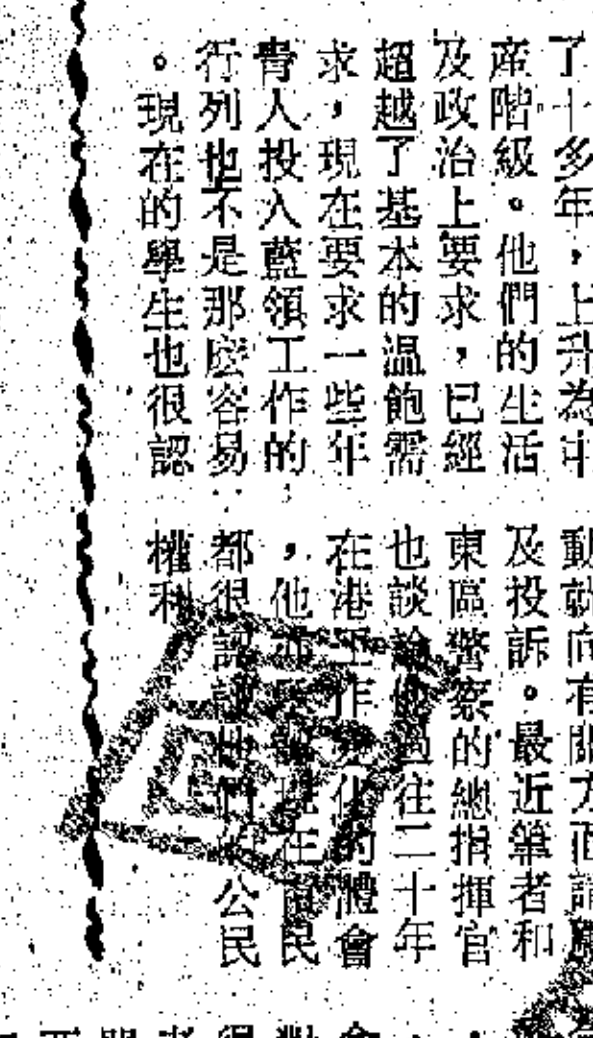 了十多年，上升為中
産階級。他們的生活
及政治上要求，已經
超越了基本的温飽需
求，現在要求一些年
青人投入藍領工作的
行列也不是那麽容易
。現在的學生也很認
動就向有關方面請願
及投訴。最近筆者和
東區警察的總指揮官
也談論他過往二十年
在港工作變化的體會
，他 現在市民
都很認識他們的公民
權利